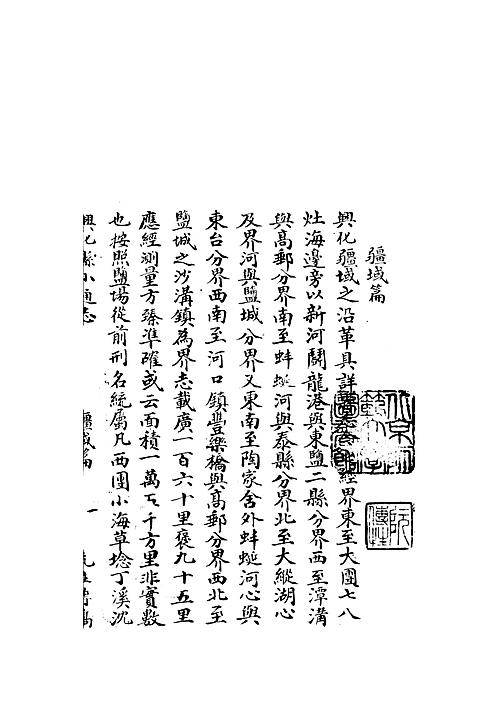 疆域篇
興化疆域之沿革具詳經界東至大團七八
灶海邊旁以新河鬭龍港與東鹽二縣分界西至潭溝
與高郵分界南至蚌蜒河與泰縣分界北至大縱湖心
及界河與鹽城分界又東南至陶家舍外蚌蜒河心與
東台分界西南至河口鎮豐樂橋與高郵分界西北至
鹽城之沙溝鎮為界志載廣一百六十里袤九十五里
應經測量方臻準確或云面積一萬五千方里非實數
也按照鹽場從前刑名統屬凡西團小海草堰丁溪沈
興化縣小通志 疆域篇 一